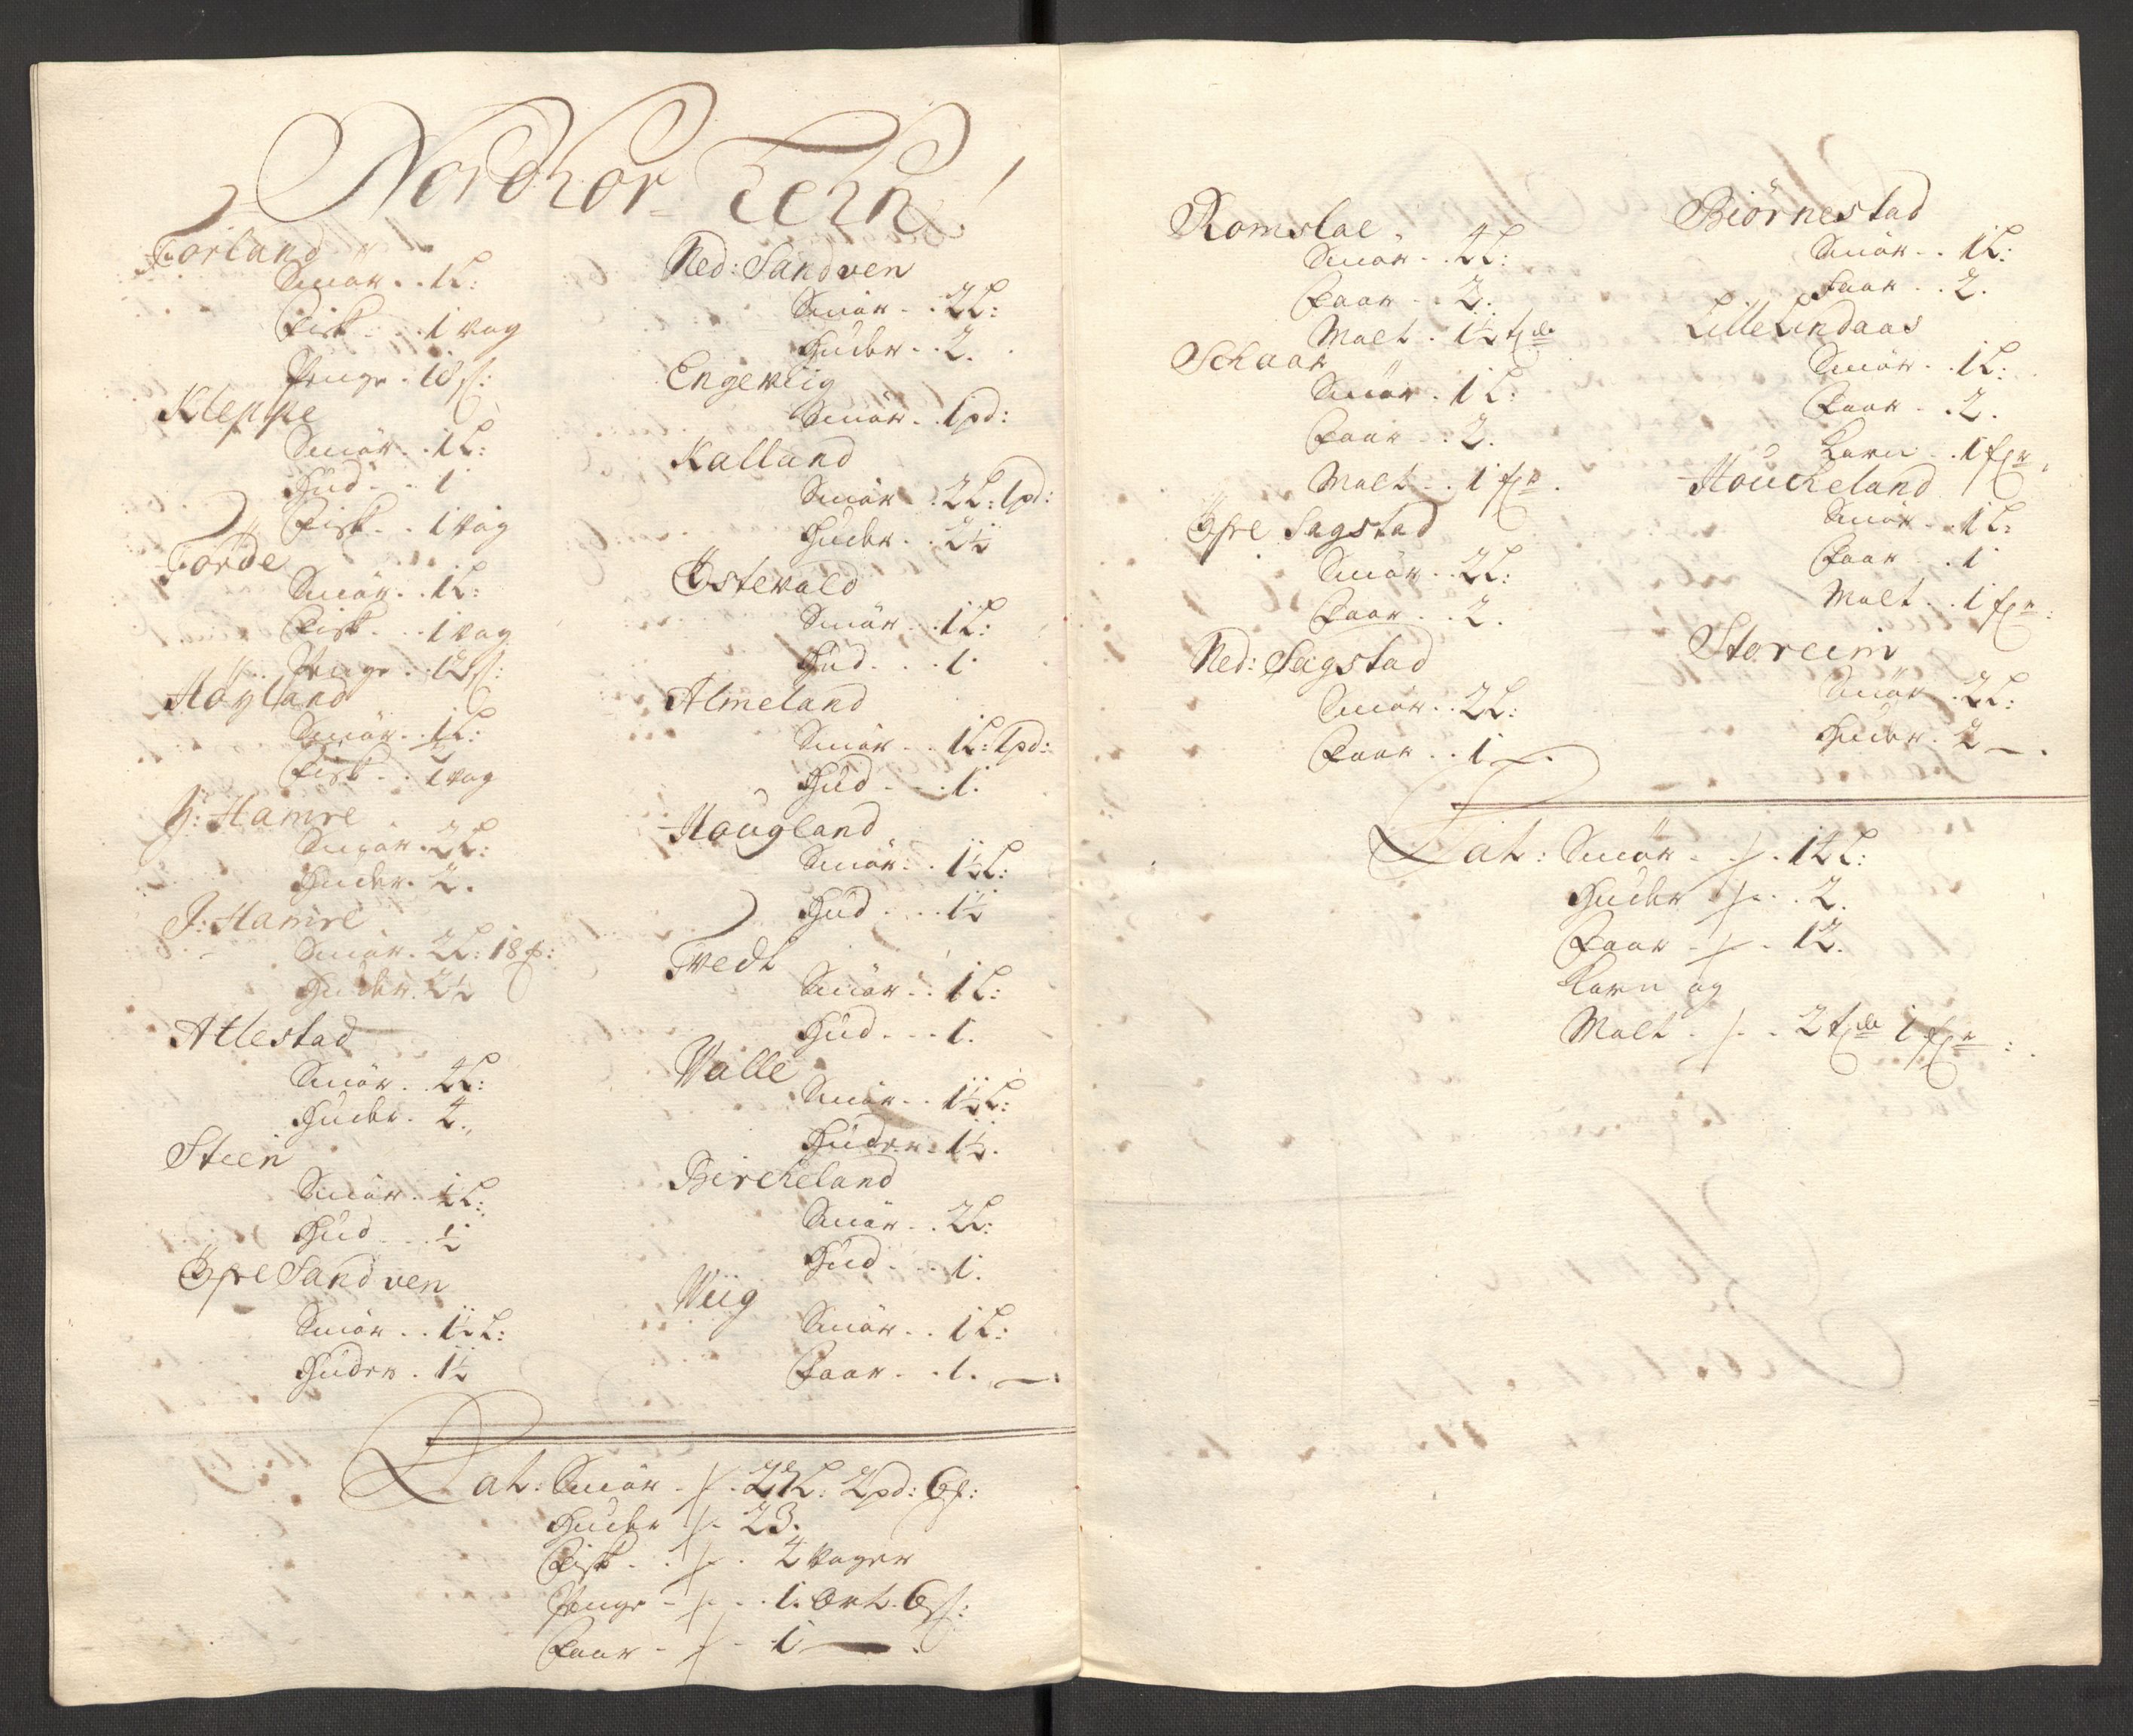 Nordhor-Lehn
Førland
Smør . . 1 L:
Fisk . . 1 vog
Penge . 18 s:
Kleppe
Smør . . 1 L:
Hud . . 1
Fisk . . 1 vog
Førde
Smør . . 1 L:
Fisk . . 1 vog
Penge . . 12 s:
Høyland
Smør . . 1 L:
Fisk . . 1 vog
Y: Hamre
Smør . 2 L:
Huder . 2 .
I: Hamre
Smør . 2 L: 18
Huder . 2½
Atlestad
Smør . 4 L:
Huder . 4 .
Steen
Smør . ½ L:
Hud . . ½
Øfre Sandven
Smør . . 1½ L:
Huder . 1½
Ned: Sandven
Smør . . 2 L:
Huder . . 2 .
Engeviig
Smør . . 1 pd:
Kalland
Smør . 2 L: 1 pd:
Huder . . 2½
Østevold
Smør . . 1 L:
Hud . . . 1
Almeland
Smør . . 1 L: 1 pd:
Hud . . . 1 .
Hougland
Smør . . 1½ L:
Hud . . . 1½
Tvedt
Smør . . 1 L:
Hud . . . 1 .
Valle
Smør . . 1½ L:
Huder . 1½ .
Bircheland
Smør . . 2 L:
Hud . . . 1 .
Viig
Smør . . 1 L:
Faar . . 1 .
Lat: Smør . 27 L: 2 pd: 6
Huder 23 .
Fisk . . 4 voger
Penge . . 1 . Ort . 6 s:
Faar . 1
Romslae .
Smør . . 4 L:
Faar . . 2 .
Malt . 1½
Schaar
Smør . 1 L:
Faar . . 2 .
Malt . . 1
Øfre Sagstad
Smør . . 2 L:
Faar . . 2 .
Ned: Sagstad
Smør . . 2 L:
Faar . . 1
Biørnestad
Smør . . 1 L:
Faar . . 2 .
Lille Lindaas
Smør . . 1 L:
Faar . . 2 .
Korn . . 1
Houcheland
Smør . . 1 L:
Faar . . 1
Malt . . 1
Storeim
Smør . 2 L:
Huder . 2
Lat: Smør . . 14 L:
Huder . . 2 .
Faar . . 12 .
Korn og
Malt . . . 2 1